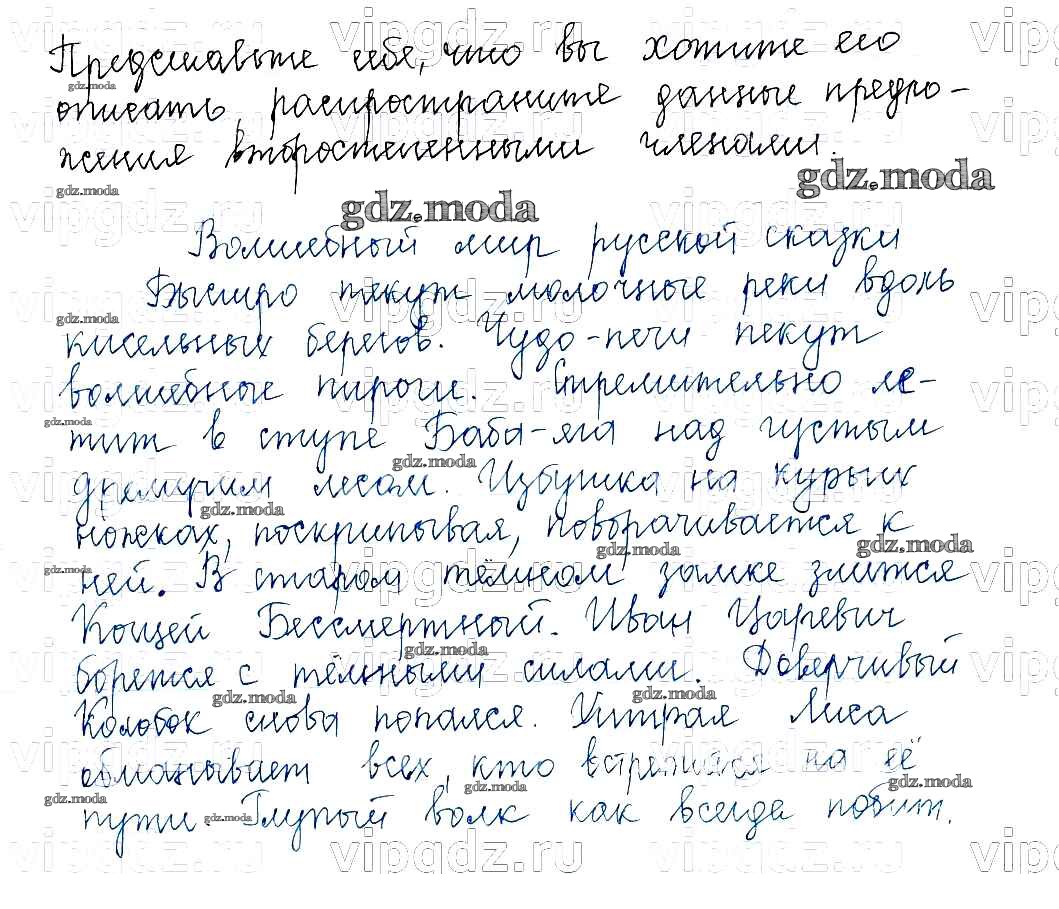 Представьте себе, что вы хотите его
описать, распространите данные предло-
жения второстепенными членами.
Волшебный мир русской сказки
Быстро текут молочные реки вдоль
кисельных берегов. Чудо-печи пекут
волшебные пироги. Стремительно ле-
тит в ступе Баба-яга над густым
дремучим лесом. Избушка на курьих
ножках, поскрипывая, поворачивается к
ней. В старом тёмном замке злится
Кощей Бессмертный. Иван Царевич
борется с тёмными силами. Доверчивый
Колобок снова попался. Хитрая Лиса
обманывает всех, кто встретился на её
пути. Глупый волк как всегда побит.